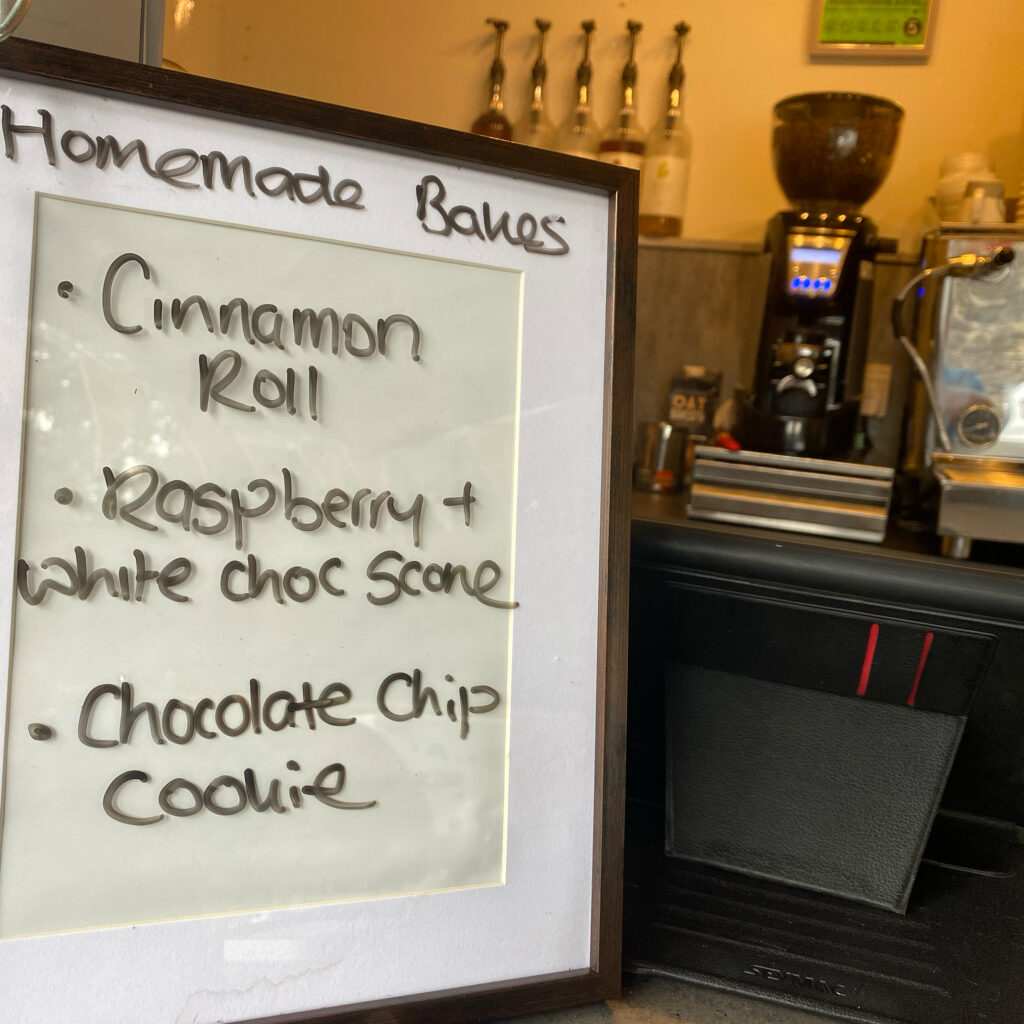 Homemade Bakes
• Cinnamon
Roll
• Raspberry +
white choc Scone
• Chocolate Chip
Cookie
OAT